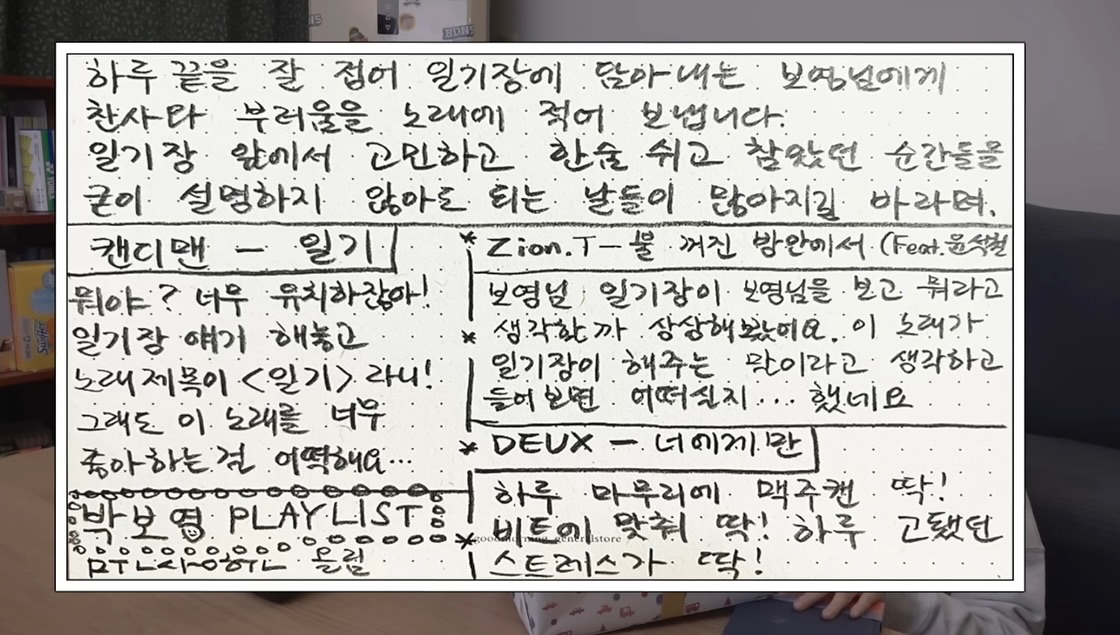 하루 끝을 잘 접어 일기장에 담아내는 보영님에게
찬사와 부러움을 노래에 적어 보냅니다.
일기장 앞에서 고민하고 한숨 쉬고 참았던 순간들을
굳이 설명하지 않아도 되는 날들이 많아지길 바라며.
캔디맨 - 일기
뭐야? 너무 유치하잖아!
일기장 얘기 해놓고
노래 제목이 <일기>라니!
그래도 이 노래를 너무
좋아하는걸 어떡해요...
박보영 PLAYLIST
올림
* Zion.T - 불 꺼진 방안에서 (Feat. 윤석철
보영님 일기장이 보영님을 보고 뭐라고
* 생각할까 상상해봤어요. 이 노래가
일기장이 해주는 말이라고 생각하고
들어보면 어떠실지... 했네요
* DEUX - 너에게만
하루 마무리에 맥주캔 딱!
* 비트에 맞춰 딱! 하루 고됐던
스트레스가 딱!
goodmorning_generalstore
BDNS
Swiffer